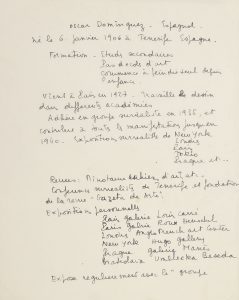 Oscar Dominguez. Espagnol.
Né le 6 janvier 1906 à Tenerife Espagne.
Formation - Etudes secondaires
Pas decole d'art
Commence à peindre seul depuis
l'enfance
Vient à Paris en 1927. Travaille le dessin
dans differentes académies
Adhère en groupe surréaliste en 1935, et
à toute la manifestation jusqu'en
1940. Exposition surréaliste de New York
Londres
Paris
Tokio
Prague et...
Revues: Minotaure d'art. et..
Conference surrealiste de Tenerife et fondation
de la revue - Gazeta de Arte.
Expositions personnelles
Paris galerie Louis Carré
Paris galerie Roux Henschel
Londres Anglo French art Center
New York Hugo gallery
Prague galerie Manès
Bratislava Umelecka Beseda
Expose régulièrement avec le groupe